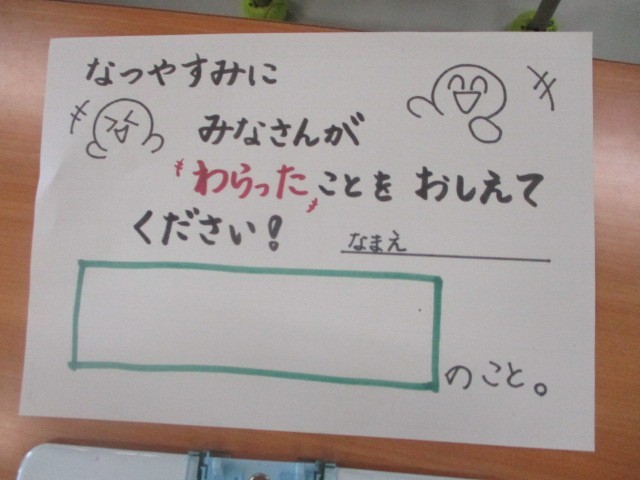 なつやすみに
みなさんが
わらったことを おしえて
ください！
なまえ
のこと。